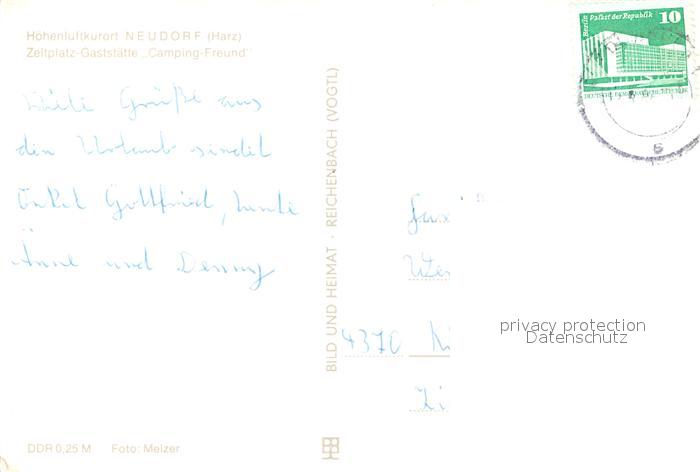 Höhenluftkurort NEUDORF (Harz)
Zeltplatz-Gaststätte „Camping-Freund"
Viele Grüße aus
den Urlaub sendet
Onkel Gottfried, tante
Änne und Denny
BILD UND HEIMAT · REICHENBACH (VOGTL)
Berlin Palast der Republik
10
DEUTSCHE DEMOKRATISCHE REPUBLIK
Fax
4370 Kö
privacy protection
Datenschutz
DDR 0,25 M Foto: Melzer